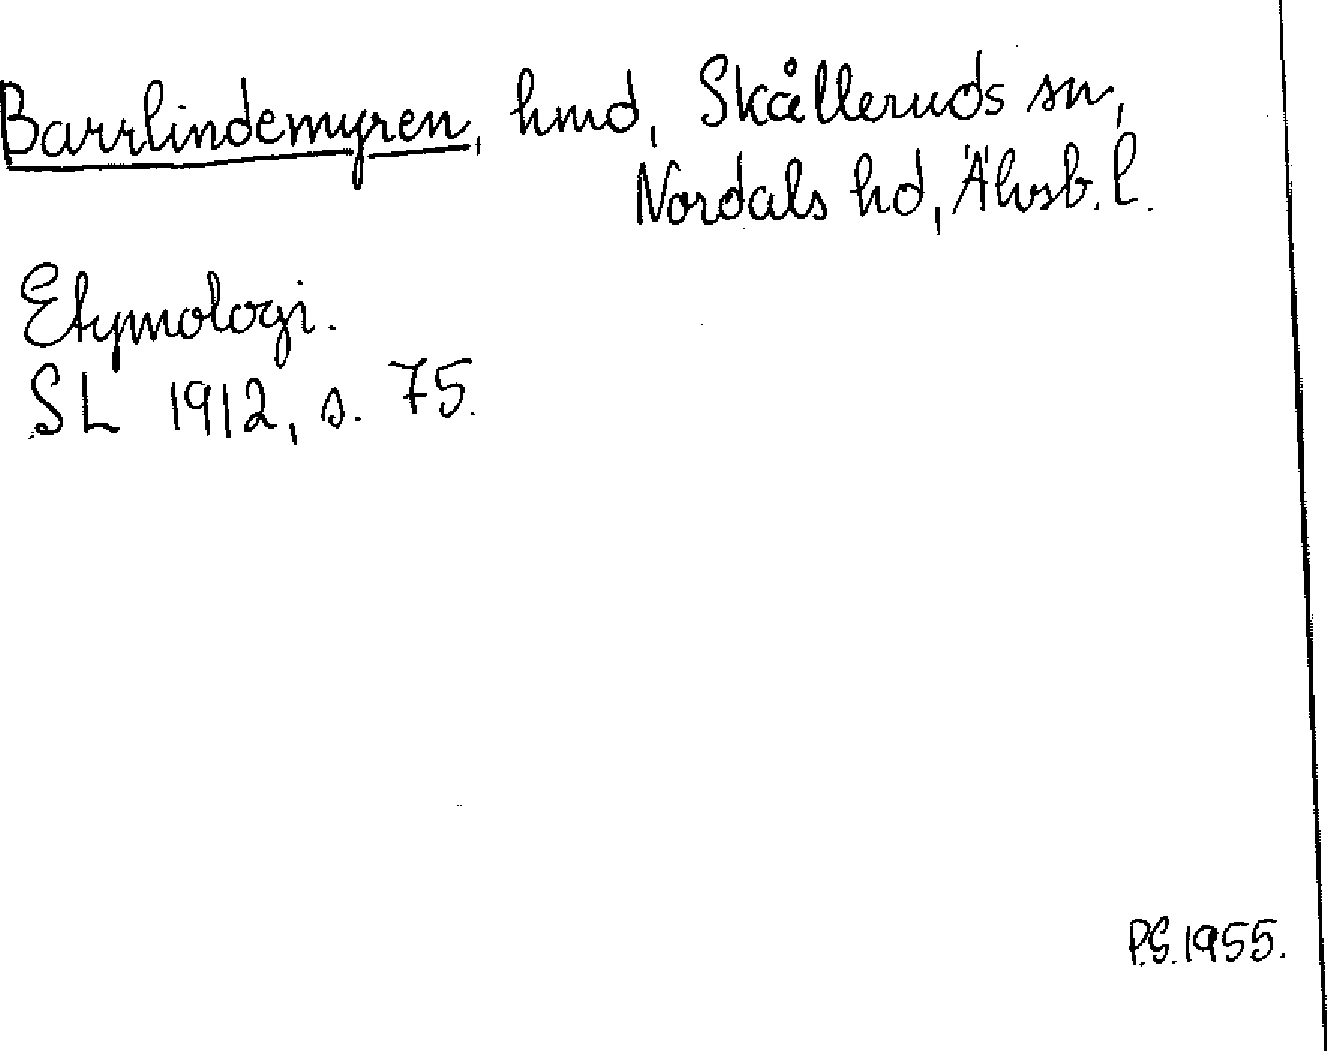 Barrlindemyren, hmd, Skålleruds sn,
Nordals hd, Älvsb. l.
Etymologi.
SL 1912, s. 75.
P.G. 1955.